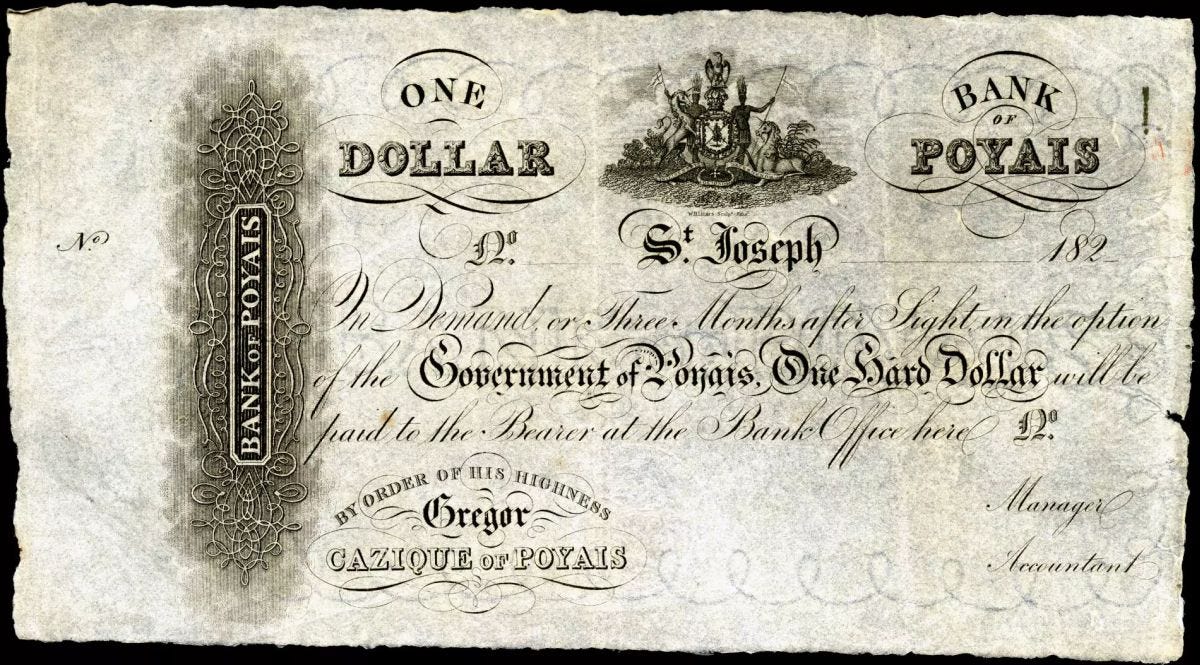 ONE
DOLLAR
BANK
OF
POYAIS
BANK OF POYAIS
W.H.Lizars Sculpt.
No
No. St. Joseph 182
On Demand, or Three Months after Sight, in the option
of the Government of Poyais, One Hard Dollar will be
paid to the Bearer at the Bank Office here No.
BY ORDER OF HIS HIGHNESS
Gregor
CAZIQUE OF POYAIS
Manager
Accountant